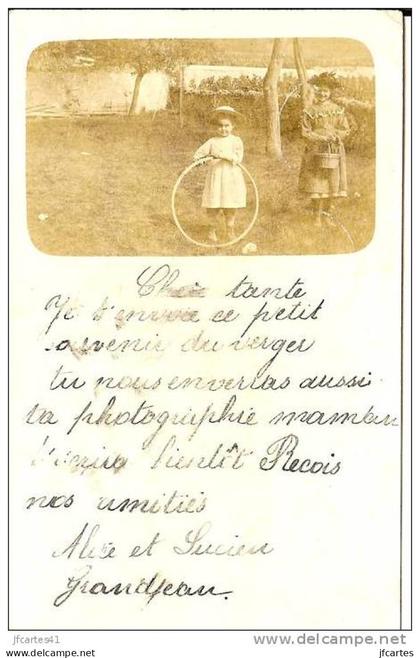 Cheie tante
Je t'envoie ce petit
souvenir du verger
tu nous enverras aussi
ta photographie maman
t'écrira bientôt Recois
nos amitiés
Alice et Lucien
Grandjean.
jfcartes41
jfcartes
www.delcampe.net